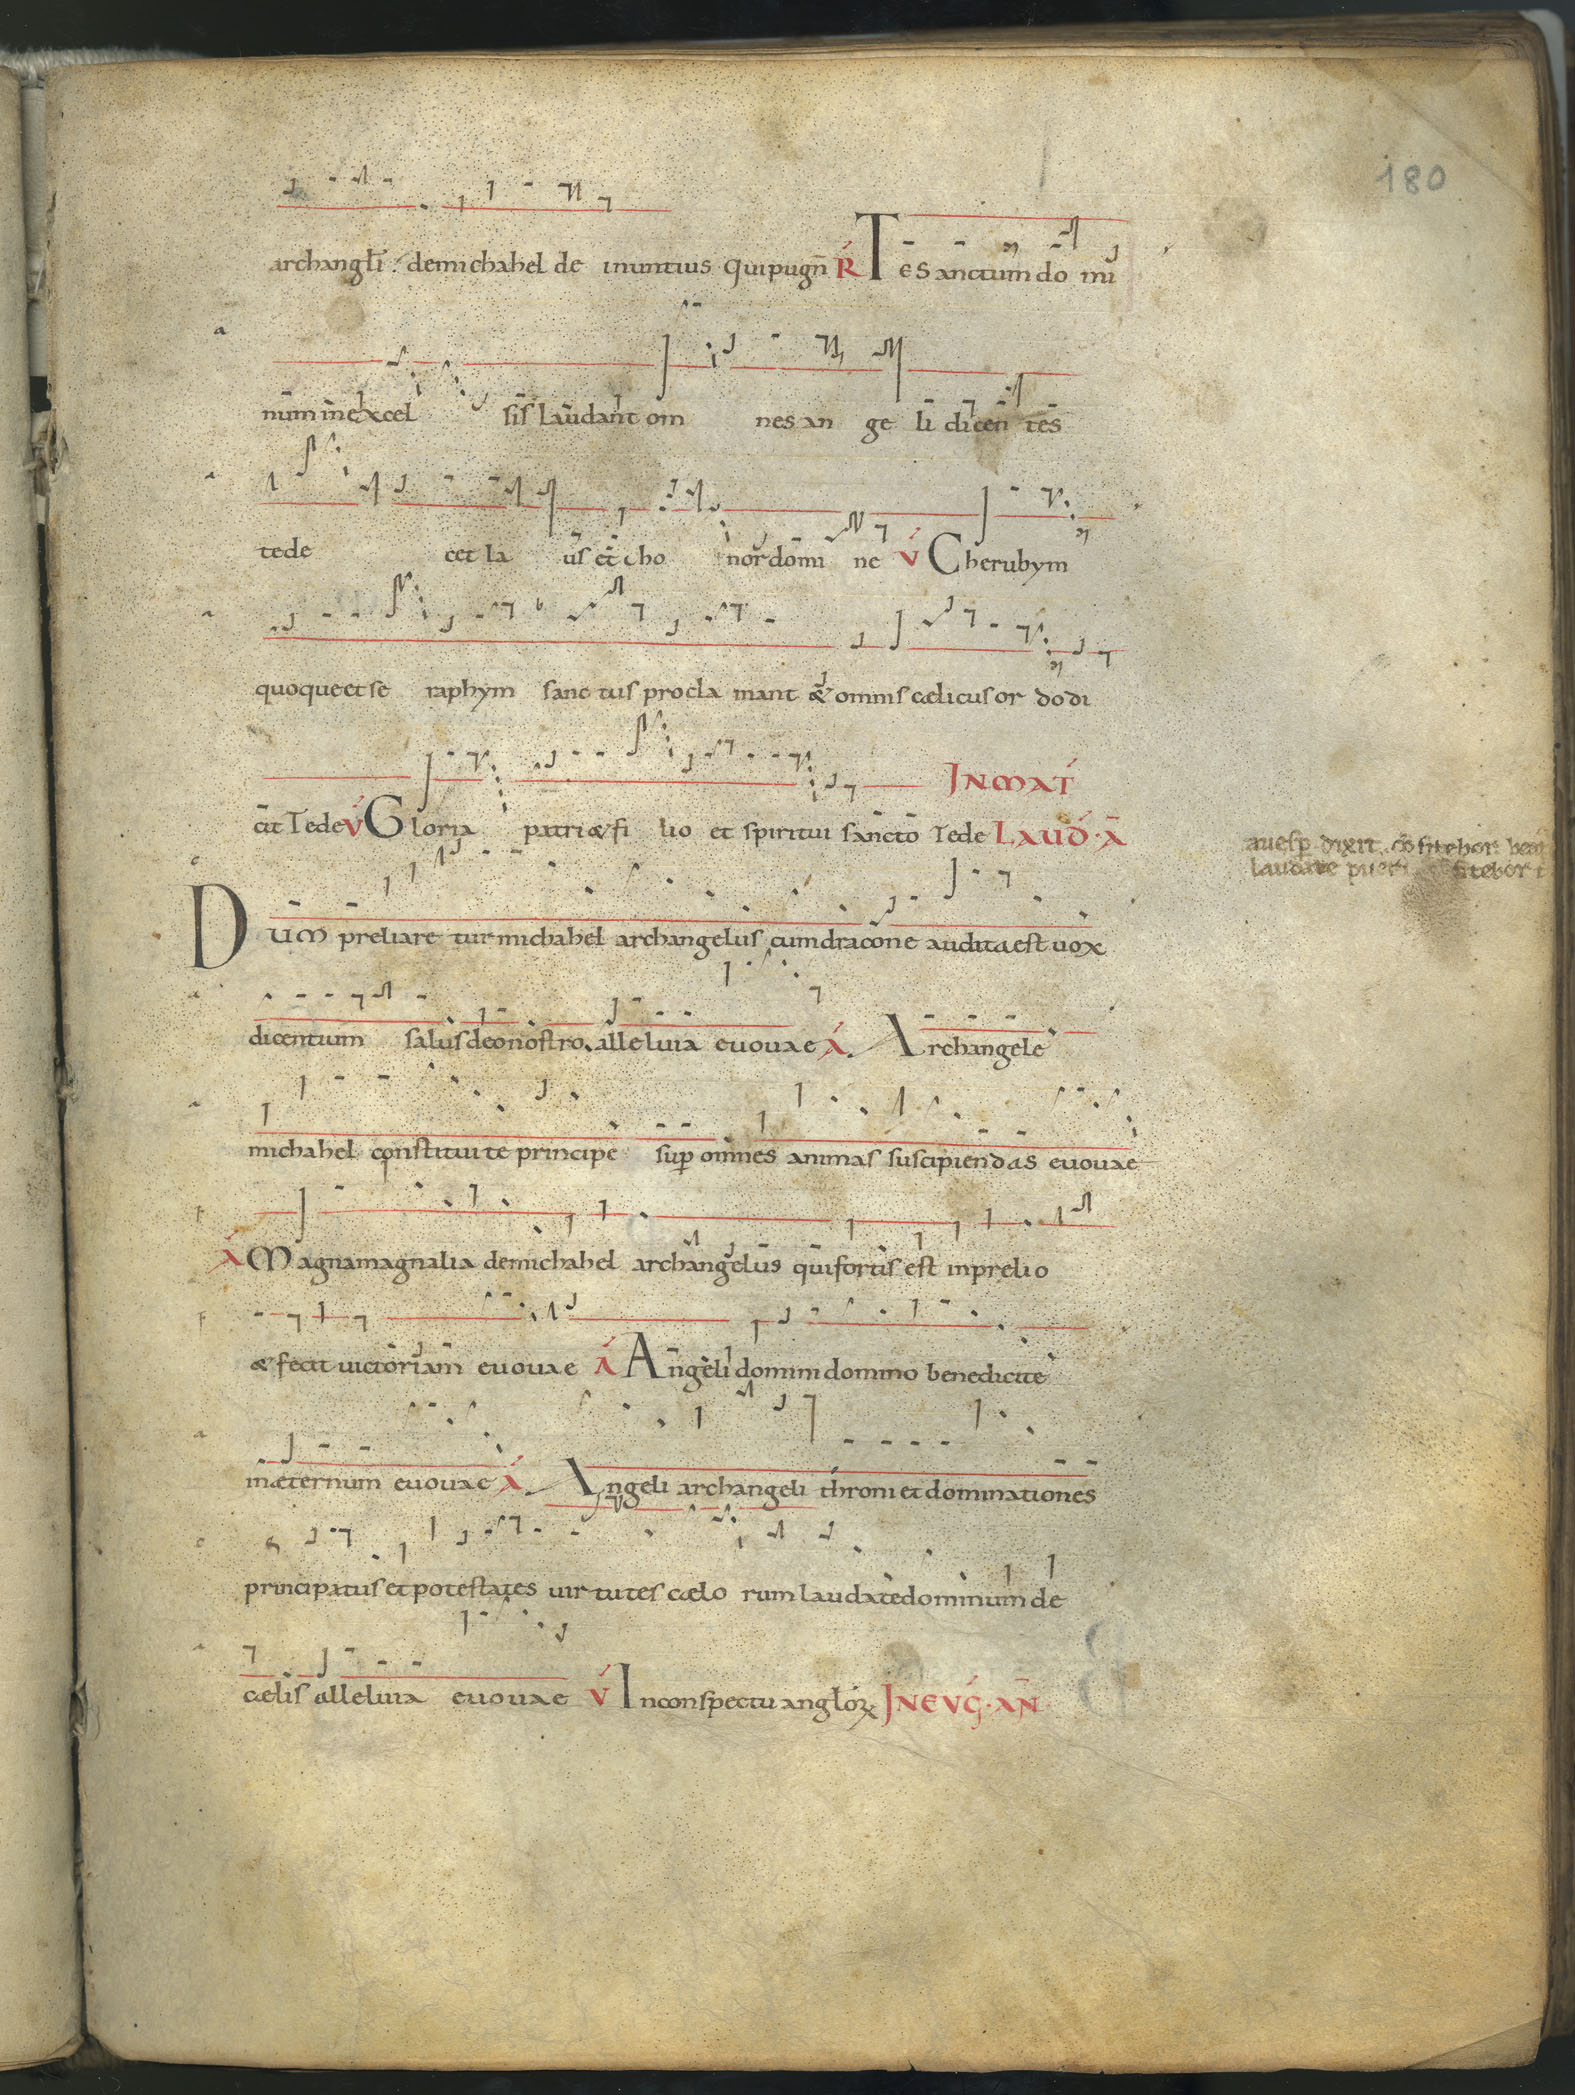 180
archangłi. demichahel de inuntius quipugn̄ R Te sanctum do mi
num in excel sis laudant om nes an ge li dicen tes
tede cet la us et ho nor domi ne V Cherubym
quoque et se raphym sanc tus procla mant & omnis cælicus or do di
cit Tede V Gloria patri & fi lio et spiritui sancto Tede
IN MAT
LAUD · A
auesp dixit
laudate pueri
Dum preliare tur michahel archangelus cum dracone audita est uox
dicentium salus deo nostro alleluia euouae A Archangele
michahel constitui te principe sup omnes animas suscipiendas euouae
A Magna magnalia demichahel archangelus qui fortis est in prelio
& fecit uictoriam euouae A Angeli domini domino benedicite
in æternum euouae A Angeli archangeli throni et dominationes
principatus et potestates uir tutes cælo rum laudate dominum de
cælis alleluia euouae V In conspectu angłoꝝ IN EVG · AN